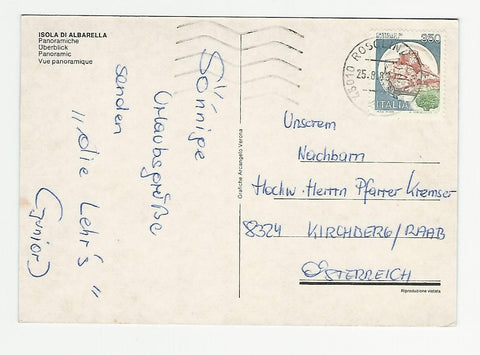 ISOLA DI ALBARELLA
Panoramiche
Überblick
Panoramic
Vue panoramique
Sonnige
Urlaubsgrüße
senden
"die Lehr's"
(Junior)
Grafiche Arcangelo Verona
CASTELLO DI
350
ITALIA
45010 ROSOLINA
25.8.8
Unserem
Nachbarn
Hochw. Herrn Pfarrer Kremser
8324 KIRCHBERG/RAAB
ÖSTERREICH
Riproduzione vietata